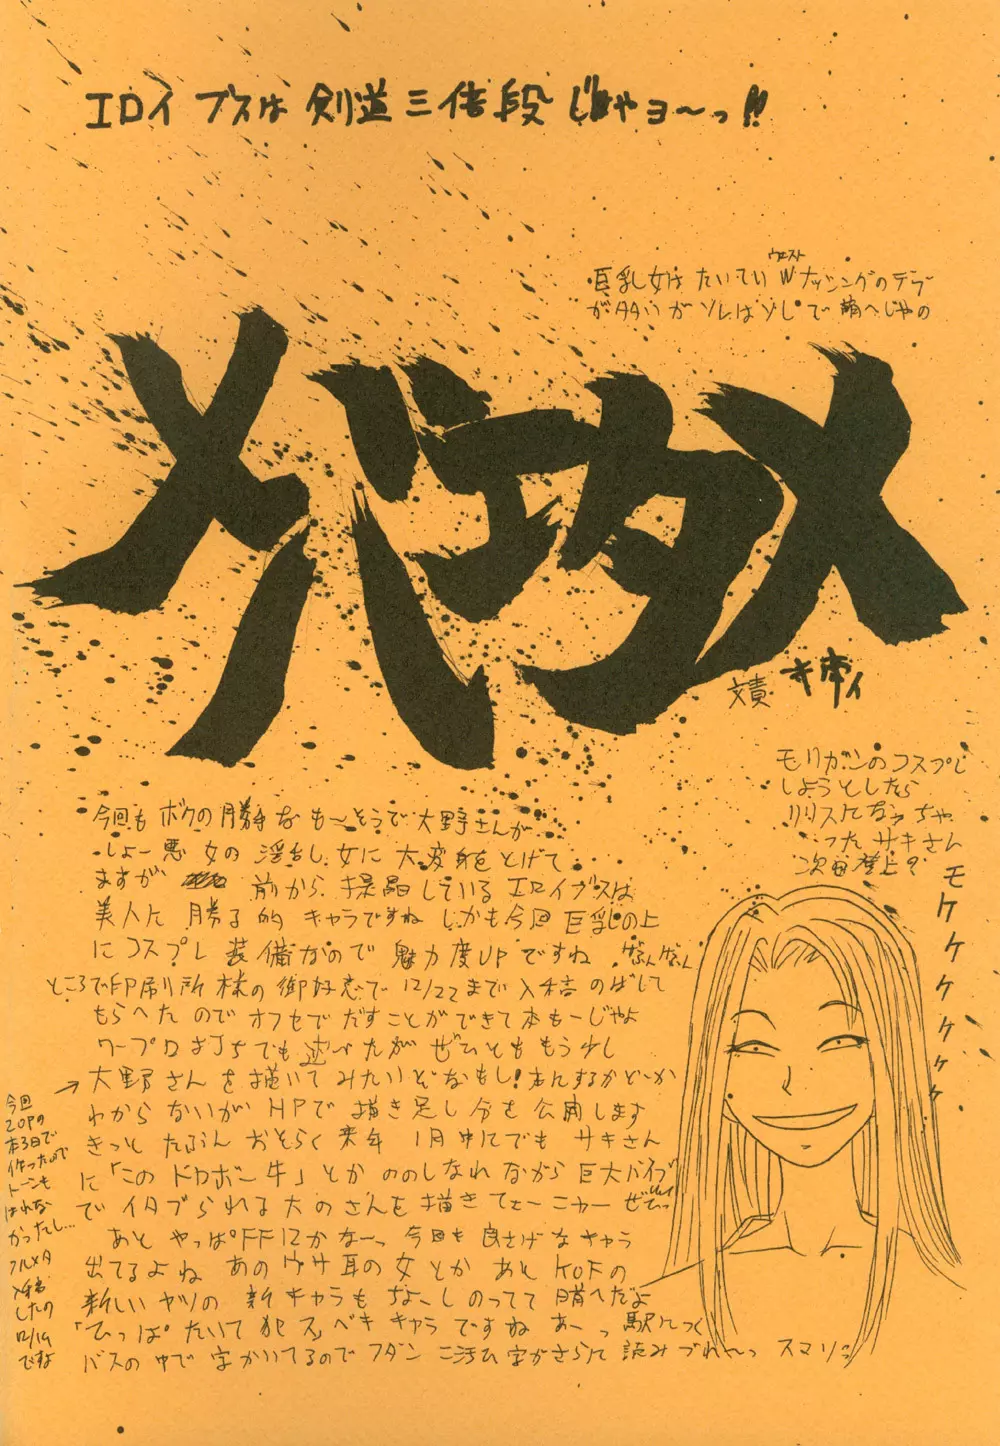 エロイ ブスは 剣道三倍段じゃョ〜っ!!
ウエスト
巨乳女は たいてい Wナッシングのデブ
が多いが ソレはソレで 萌へじゃの
メガバエタメ
文責
モリガンのコスプレ
しようとしたら
リリスになっちゃ
った サキさん
次回 登上?
モケケケケケケ
今回も ボクの勝手な も〜そうで 大野さんが
しょー悪女の 淫乱し女に 大変身をとげて
ますが 前から 提唱している エロイブスは
美人に 勝る 的 キャラですね しかも今回 巨乳の上
にコスプレ 装備なので 魅力度UPですね
ところで印刷所様の御好意で 12/22まで入稿のばして
もらへたのでオフセでだすことができて本もーじゃよ
ワープロ打ちでも 述べたが ぜひとも もう少し
→大野さんを描いてみたいぞなもし!本にするかどーか
わからないがHPで描き足し分を公開します
きっと たぶん おそらく来年 1月中にでも サキさん
に「このドロボー牛」とか ののしなれながら 巨大バイブ
で イタブられる 大のさんを 描きてェーニャー ぜひっ
あと やっぱFF12かなーっ 今回も良さげなキャラ
出てるよね あのウサ耳の女とか あと KOFの
新しいヤツの 新キャラも なーしのってて 萌へだよ
「ひっぱたいて犯スベキキャラですね あーっ 駅につく
バスの中で字かいてるのでフダンニ汚ひ字がさらに 読みづれ〜っ スマソ
今回
20Pの
本3日で
作ったので
トーンも
はれな
かったし…
フルメタ
入稿
したの
12/19
ですよ